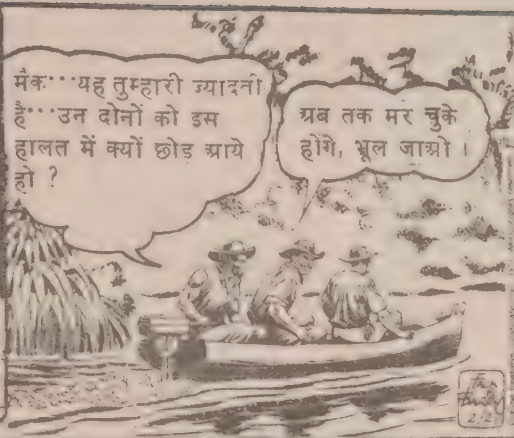 मैक···यह तुम्हारी ज्यादती
है···उन दोनों को इस
हालत में क्यों छोड़ आये
हो ?
अब तक मर चुके
होंगे, भूल जाओ ।